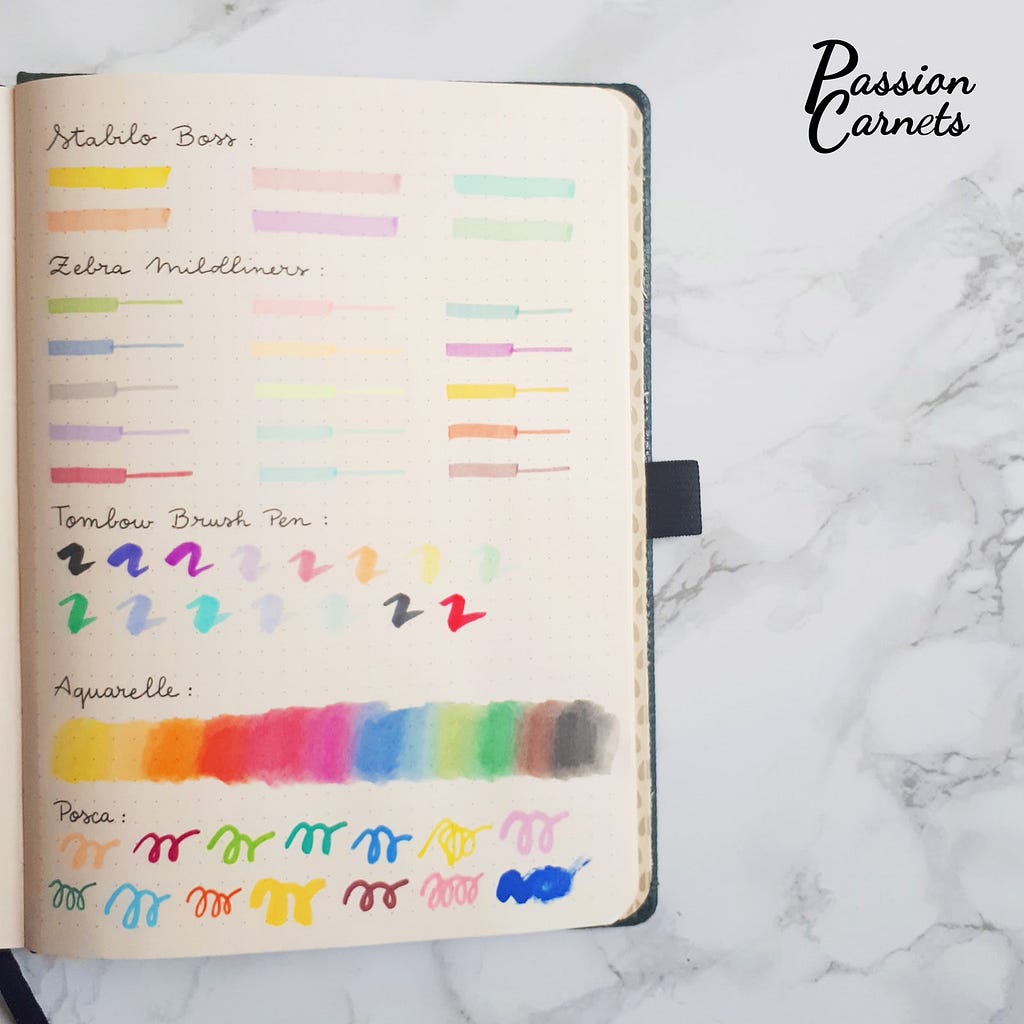 Passion
Carnets
Stabilo Boss :
Zebra Mildliners :
Tombow Brush Pen :
Aquarelle :
Posca :